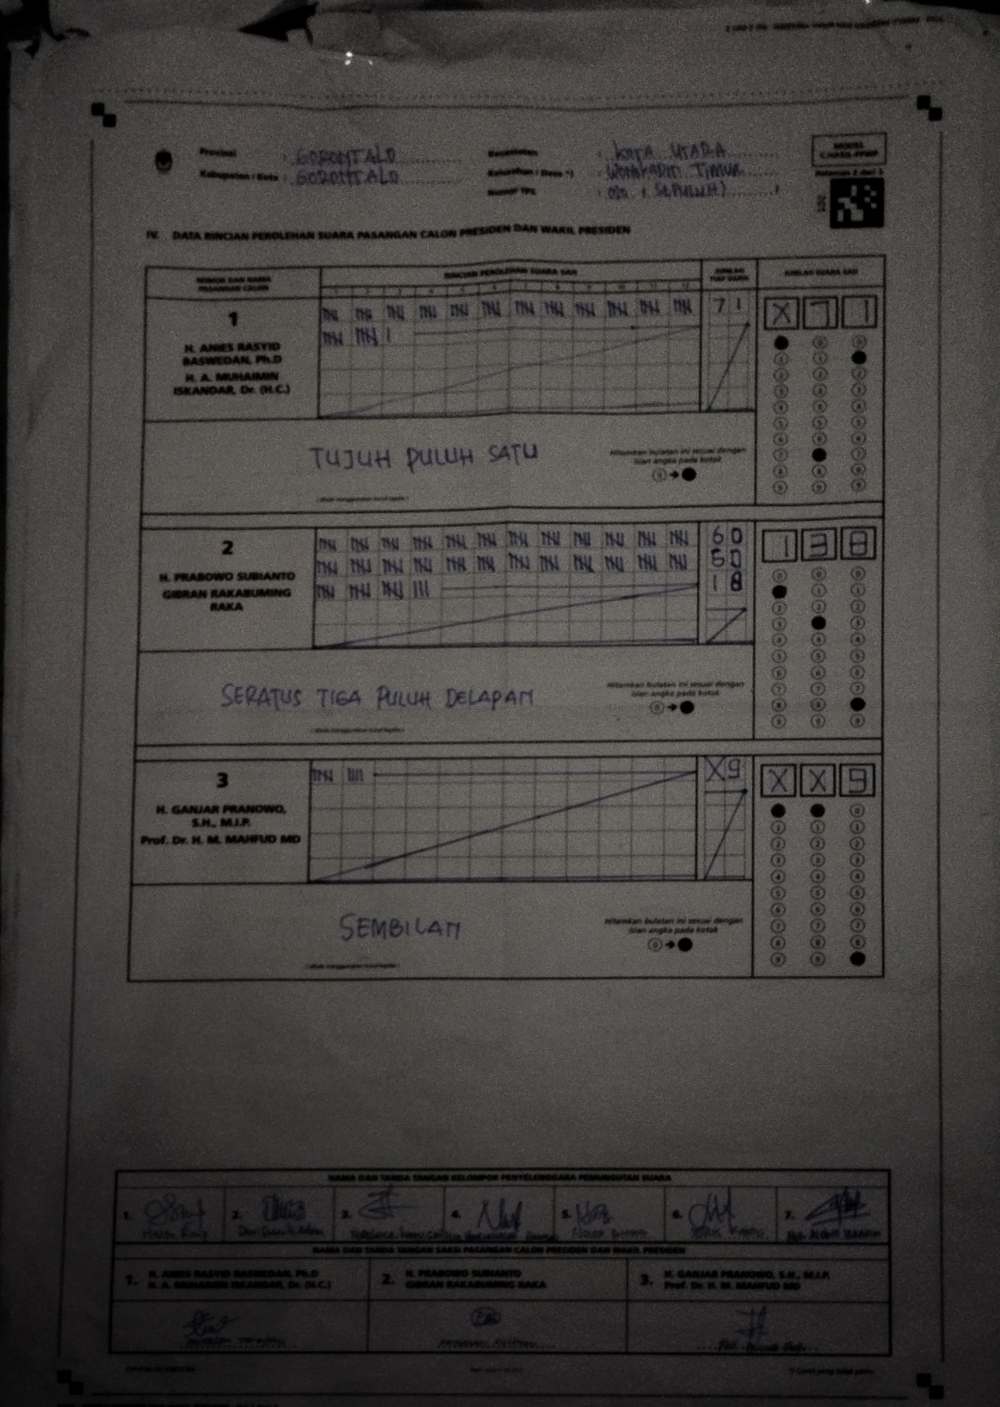 Provinsi : GORONTALO
Kabupaten / Kota : GORONTALO
Kecamatan : KOTA UTARA
Kelurahan / Desa *) : WONGKADITI TIMUR
Nomor TPS : 010 ( SEPULUH )
MODEL
C.HASIL-PPWP
Halaman 2 dari 3
IV. DATA RINCIAN PEROLEHAN SUARA PASANGAN CALON PRESIDEN DAN WAKIL PRESIDEN
NOMOR DAN NAMA
PASANGAN CALON
RINCIAN PEROLEHAN SUARA SAH
JUMLAH
TIAP BARIS
JUMLAH SUARA SAH
1 2 3 4 5 6 7 8 9 10 11 12
1
H. ANIES RASYID
BASWEDAN, Ph.D
H. A. MUHAIMIN
ISKANDAR, Dr. (H.C.)
71
X 7 1
TUJUH PULUH SATU
Hitamkan bulatan ini sesuai dengan
isian angka pada kotak
2
H. PRABOWO SUBIANTO
GIBRAN RAKABUMING
RAKA
60
60
18
1 3 8
SERATUS TIGA PULUH DELAPAN
Hitamkan bulatan ini sesuai dengan
isian angka pada kotak
3
H. GANJAR PRANOWO,
S.H., M.I.P.
Prof. Dr. H. M. MAHFUD MD
X9
X X 9
SEMBILAN
Hitamkan bulatan ini sesuai dengan
isian angka pada kotak
NAMA DAN TANDA TANGAN KELOMPOK PENYELENGGARA PEMUNGUTAN SUARA
1. 2. 3. 4. 5. 6. 7.
NAMA DAN TANDA TANGAN SAKSI PASANGAN CALON PRESIDEN DAN WAKIL PRESIDEN
1. H. ANIES RASYID BASWEDAN, Ph.D
H. A. MUHAIMIN ISKANDAR, Dr. (H.C.)
2. H. PRABOWO SUBIANTO
GIBRAN RAKABUMING RAKA
3. H. GANJAR PRANOWO, S.H., M.I.P.
Prof. Dr. H. M. MAHFUD MD
*) Coret yang tidak perlu